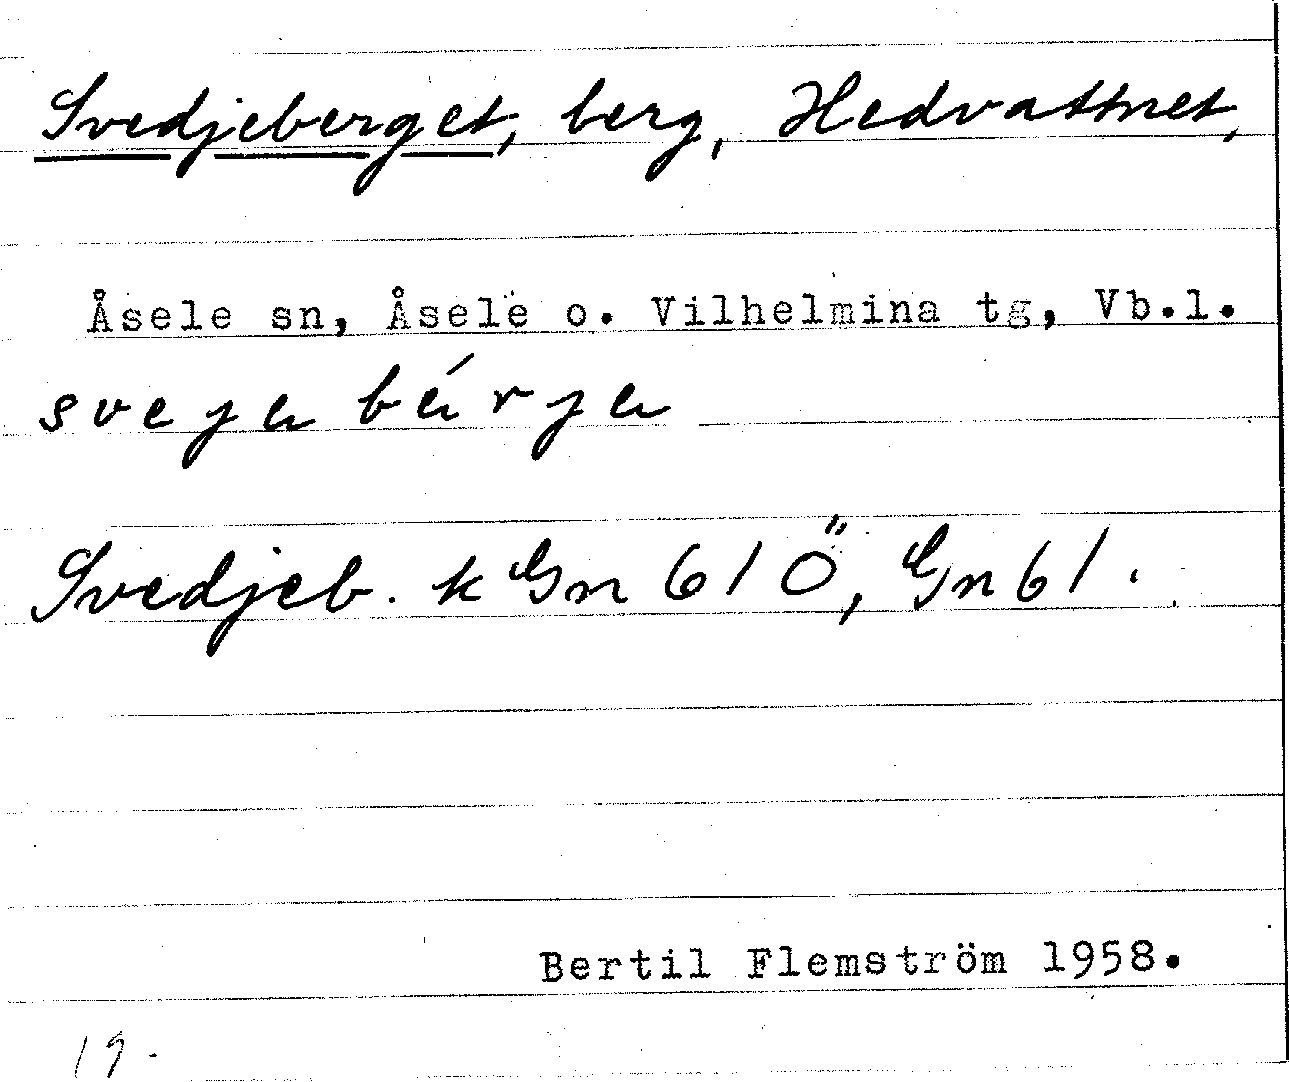 Svedjeberget, berg, Hedvattnet,
Åsele sn, Åsele o. Vilhelmina tg, Vb.l.
Svedjeb. k Gn 61 Ö, Gn 61.
Bertil Flemström 1958.
19.